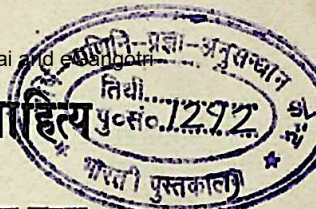 ai and eGangotri
पाणिनि-प्रज्ञा-अनुसन्धान
तिथी
ाहित्य पु०सं० 1292
भारती पुस्तकालय